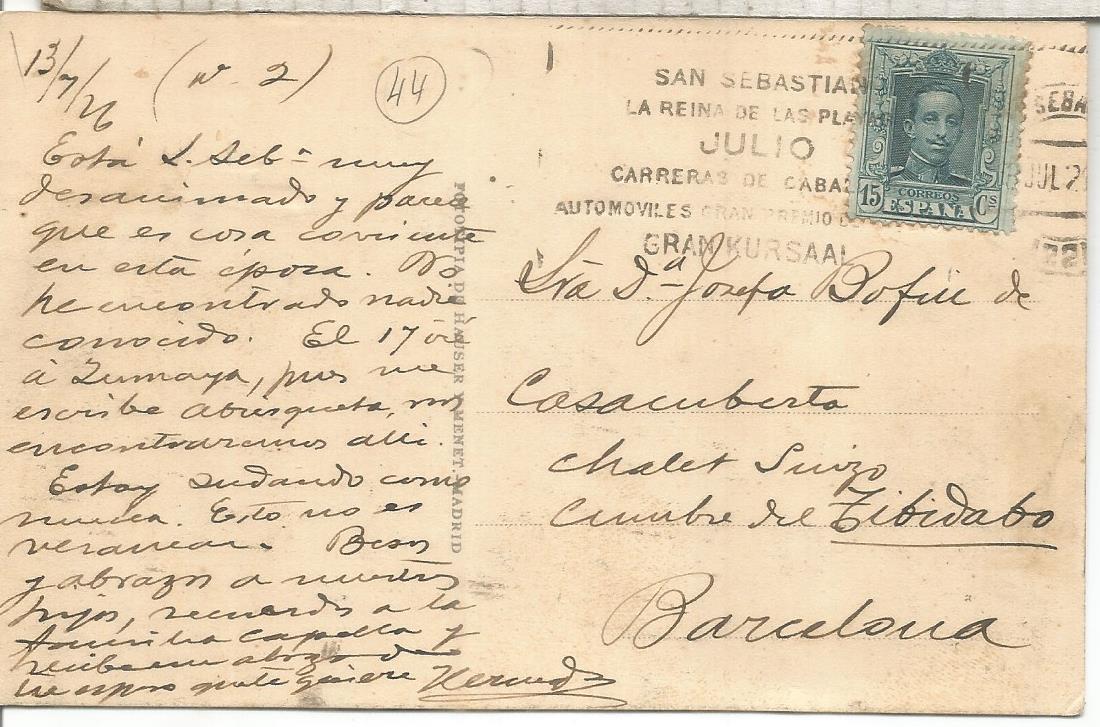 13/7/26 (nº 2)
44
Está S. Sebn muy
desanimado y parece
que es cosa corriente
en esta época. No
he encontrado nadie
conocido. El 17 iré
á Zumaya, pues me
escribe
encontraremos alli.
Estoy sudando como
nunca. Esto no es
veranear. Besos
y abrazos a nuestros
hijos, recuerdos a la
familia Capella y
recibe un abrazo de
tu esposo que te quiere
SAN SEBASTIAN
LA REINA DE LAS PLAYAS
JULIO
CARRERAS DE CABA
AUTOMOVILES GRAN PREMIO DE
GRAN KURSAAL
SEBA
JUL 2
CORREOS
15 ESPAÑA Cs
FOTOTIPIA DE HAUSER Y MENET. MADRID
Sra Dª Josefa Bofill de
Casacuberta
Chalet Suizo
Cumbre del Tibidabo
Barcelona